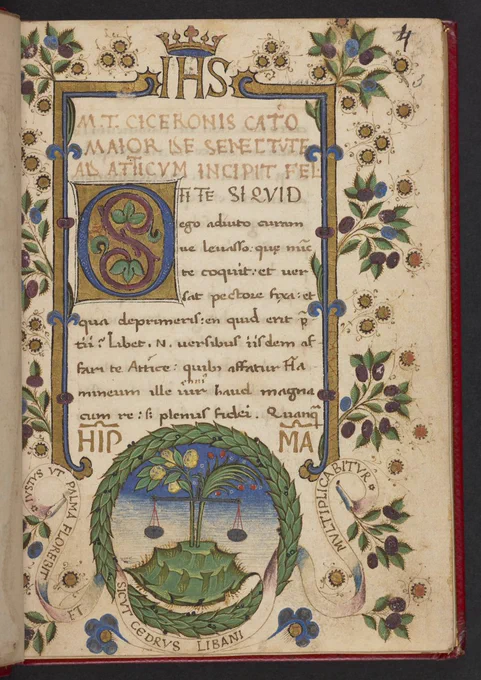 4
IHS
M.T. CICERONIS CATO
MAIOR DE SENECTVTE
AD ATTICVM INCIPIT FEL
O TITE SI QVID
ego adiuto curam
ue leuasso: quę nūc
te coquit: et uer
sat pectore fixa: et
qua deprimeris: en quid erit p̄
tii? Libet. N. uersibus iisdem af
fari te Attice: quibꝰ affatur Fla
mineum ille uir haud magna
cum re: s: plenus fidei. Quanq̄
HIP MA
IVSTVS VT PALMA FLOREBIT
ET SICVT CEDRVS LIBANI
MVLTIPLICABITVR